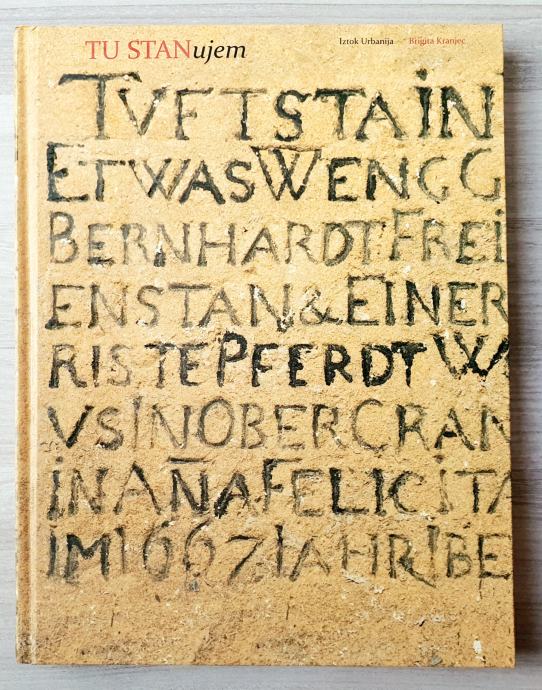 TU STANujem
Iztok Urbanija Brigita Kranjec
TVFTSTAIN
ETWAS WENG G
BERNHARDT FREI
ENSTAN & EINER
RISTE PFERDT W
VS IN OBER CRAN
IN AÑA FELICITA
IM 1667 IAHR BE